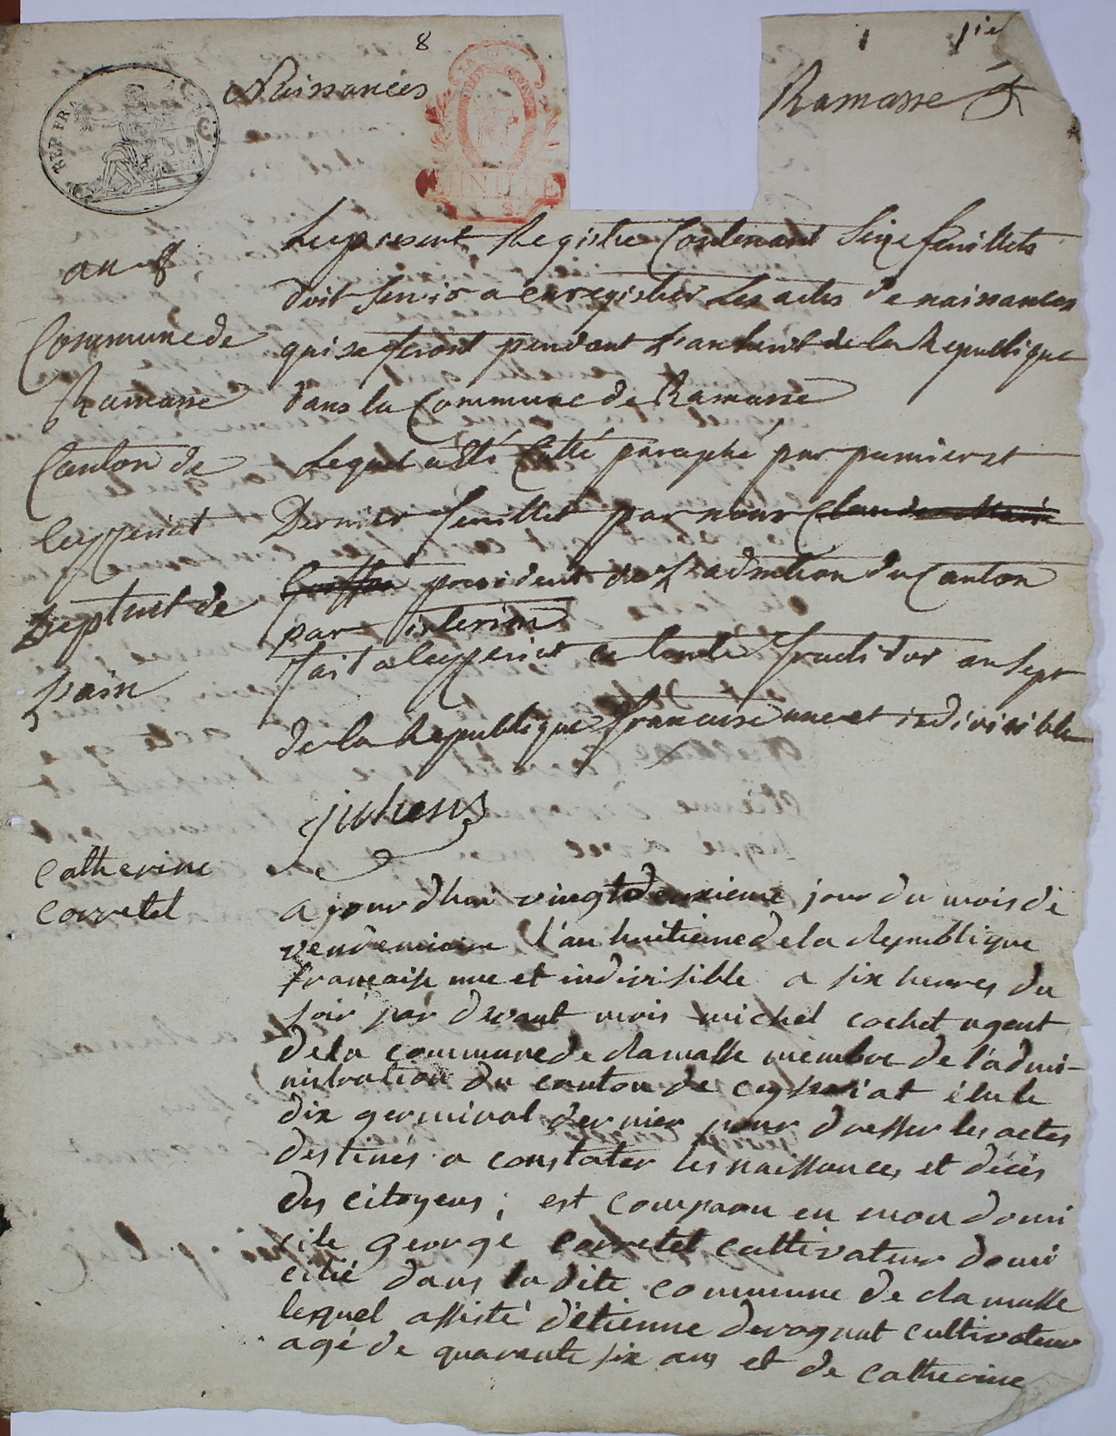 8
1 1er
Naissances
Ramasse
REP. FRA
an 8
Le present Registre Contenant Seize feuillets
doit servir a enregistrer Les actes de naissances
Commune de
qui se feront pendant L'an huit de la Republique
Ramasse
dans la Commune de Ramasse
Canton de
Lequel a été Cotté paraphé par premier et
Ceyzeriat
Dernier feuillet par nous Claude Marie
president de L'admtion du Canton
Deptmt de
par interim
L'ain
fait a Ceyzeriat ce fructidor an Sept
de la Republique francaise une et indivisible
Catherine
corretel
ajourdhui vingtdeuxieme jour du mois de
vendemiaire l'an huitieme de la Republique
francaise une et indivisible a six heures du
soir par devant mois michel cochet agent
de la commune de Ramasse membre de l'admi-
nistration du canton de ceyseriat élu le
dix germinal dernier pour dresser les actes
destines a constater les naissances et décès
des citoyens ; est comparu en mon domi
cile george corretel cultivateur domi
cilié dans la dite commune de Ramasse
lequel assisté d'étienne derognat cultivateur
agé de quarante six ans et de catherine